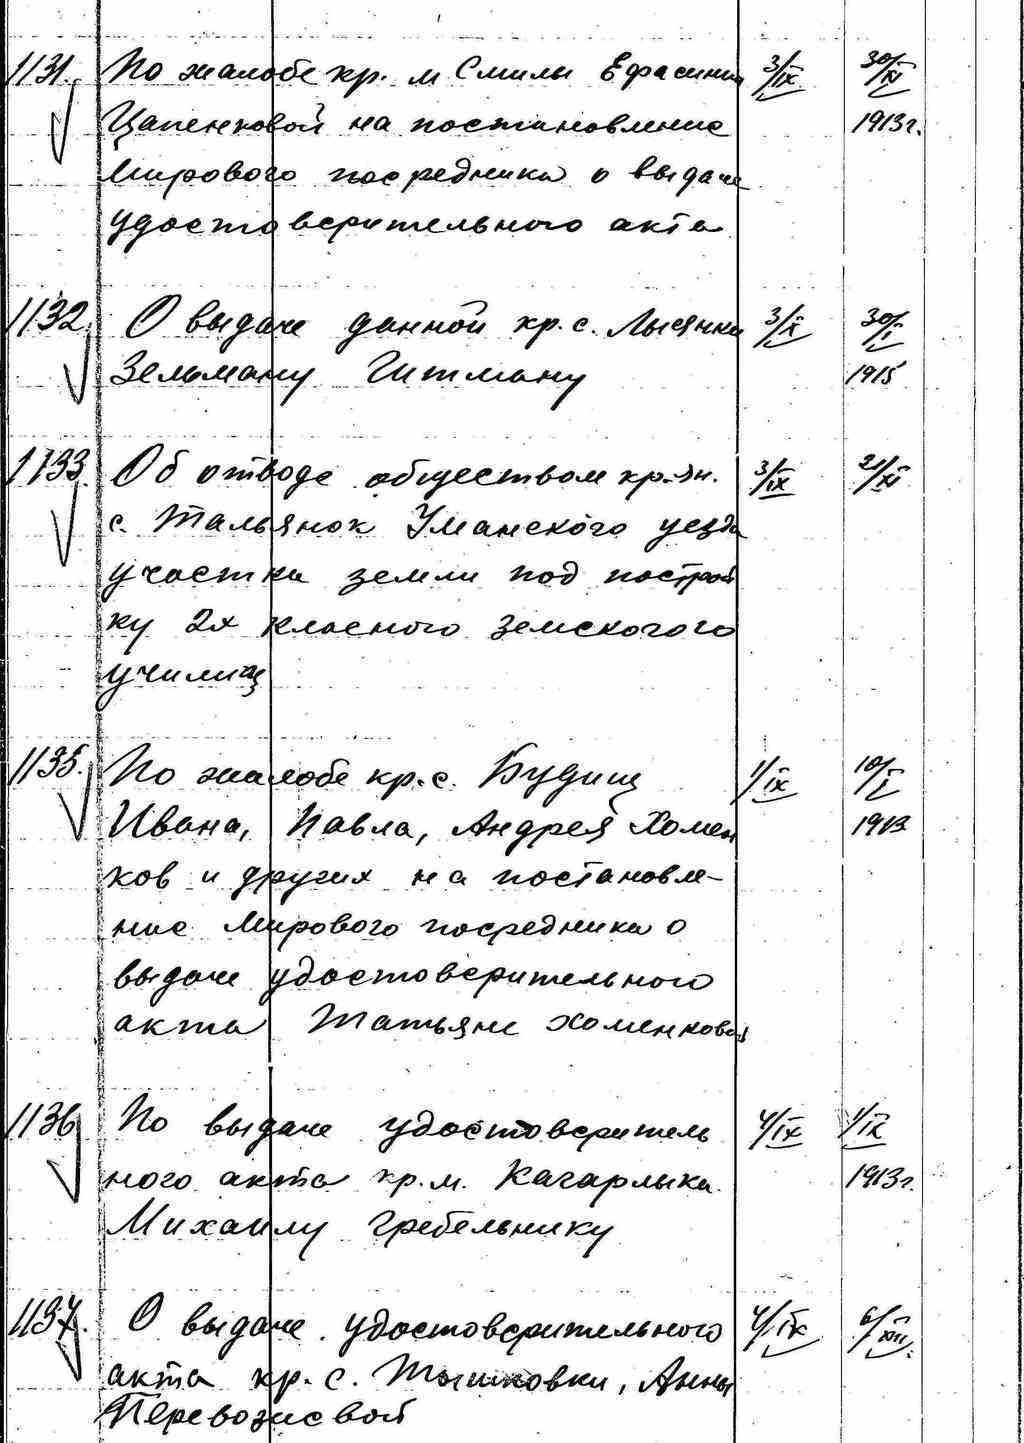 1131. По жалобе кр. м Смилы Ефросинии 3/IX 30/XI
Цапенковой на постановление 1913 г.
Мирового посредника о выдаче
удостоверительного акта
1132. О выдаче данной кр. с. Лысянки 3/X 30/I
Зельману Гитману 1915
1133. Об отводе обществом кр-ян. 3/IX 21/XI
с. Тальянок Уманского уезда
участка земли под построй
ку 2х класного земскогого
училищ
1135. По жалобе кр. с. Будищ 1/IX 10/I
Ивана, Павла, Андрея Хомен 1913
ков и других на постановле-
ние Мирового посредника о
выдаче удостоверительного
акта Татьяне Хоменковой
1136 По выдаче удостоверитель 4/IX 1/IX
ного акта кр. м. Кагарлыка 1913 г.
Михаилу Гребельнику
1137. О выдаче удостоверительного 4/IX 6/XII.
акта кр. с. Анны